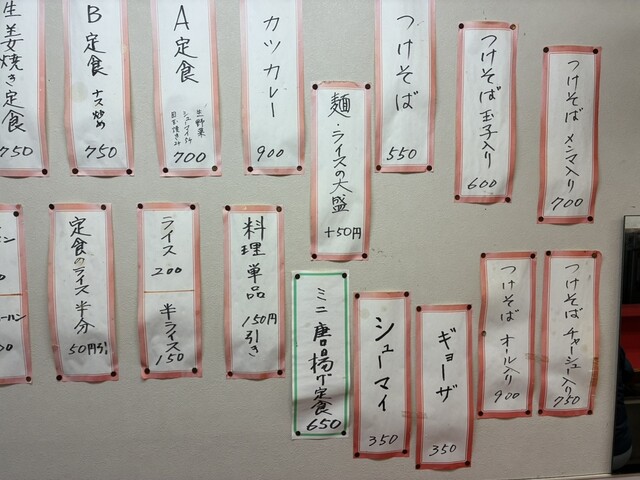 つけそば メンマ入り
700
つけそば 玉子入り
600
つけそば
550
麺・ライスの大盛
+50円
カツカレー
900
A定食
生野菜
シューマイ
目玉焼き
700
B定食
ナス炒め
750
生姜焼き定食
750
つけそば チャーシュー入り
750
つけそば オール入り
900
ギョーザ
350
シューマイ
350
ミニ唐揚げ定食
650
料理単品
150円
引き
ライス
200
半ライス
150
定食のライス半分
50円引